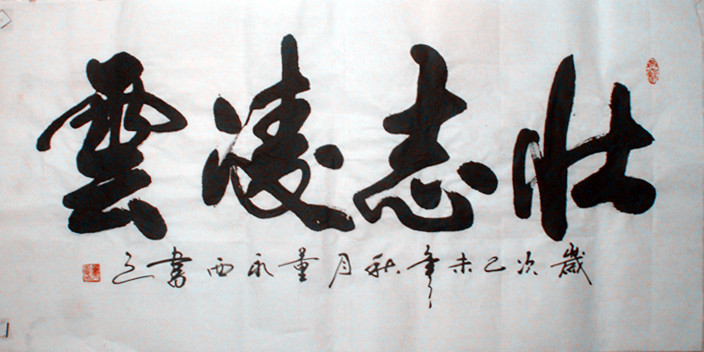 壮志凌雲
歲次乙未年秋月董永西書之